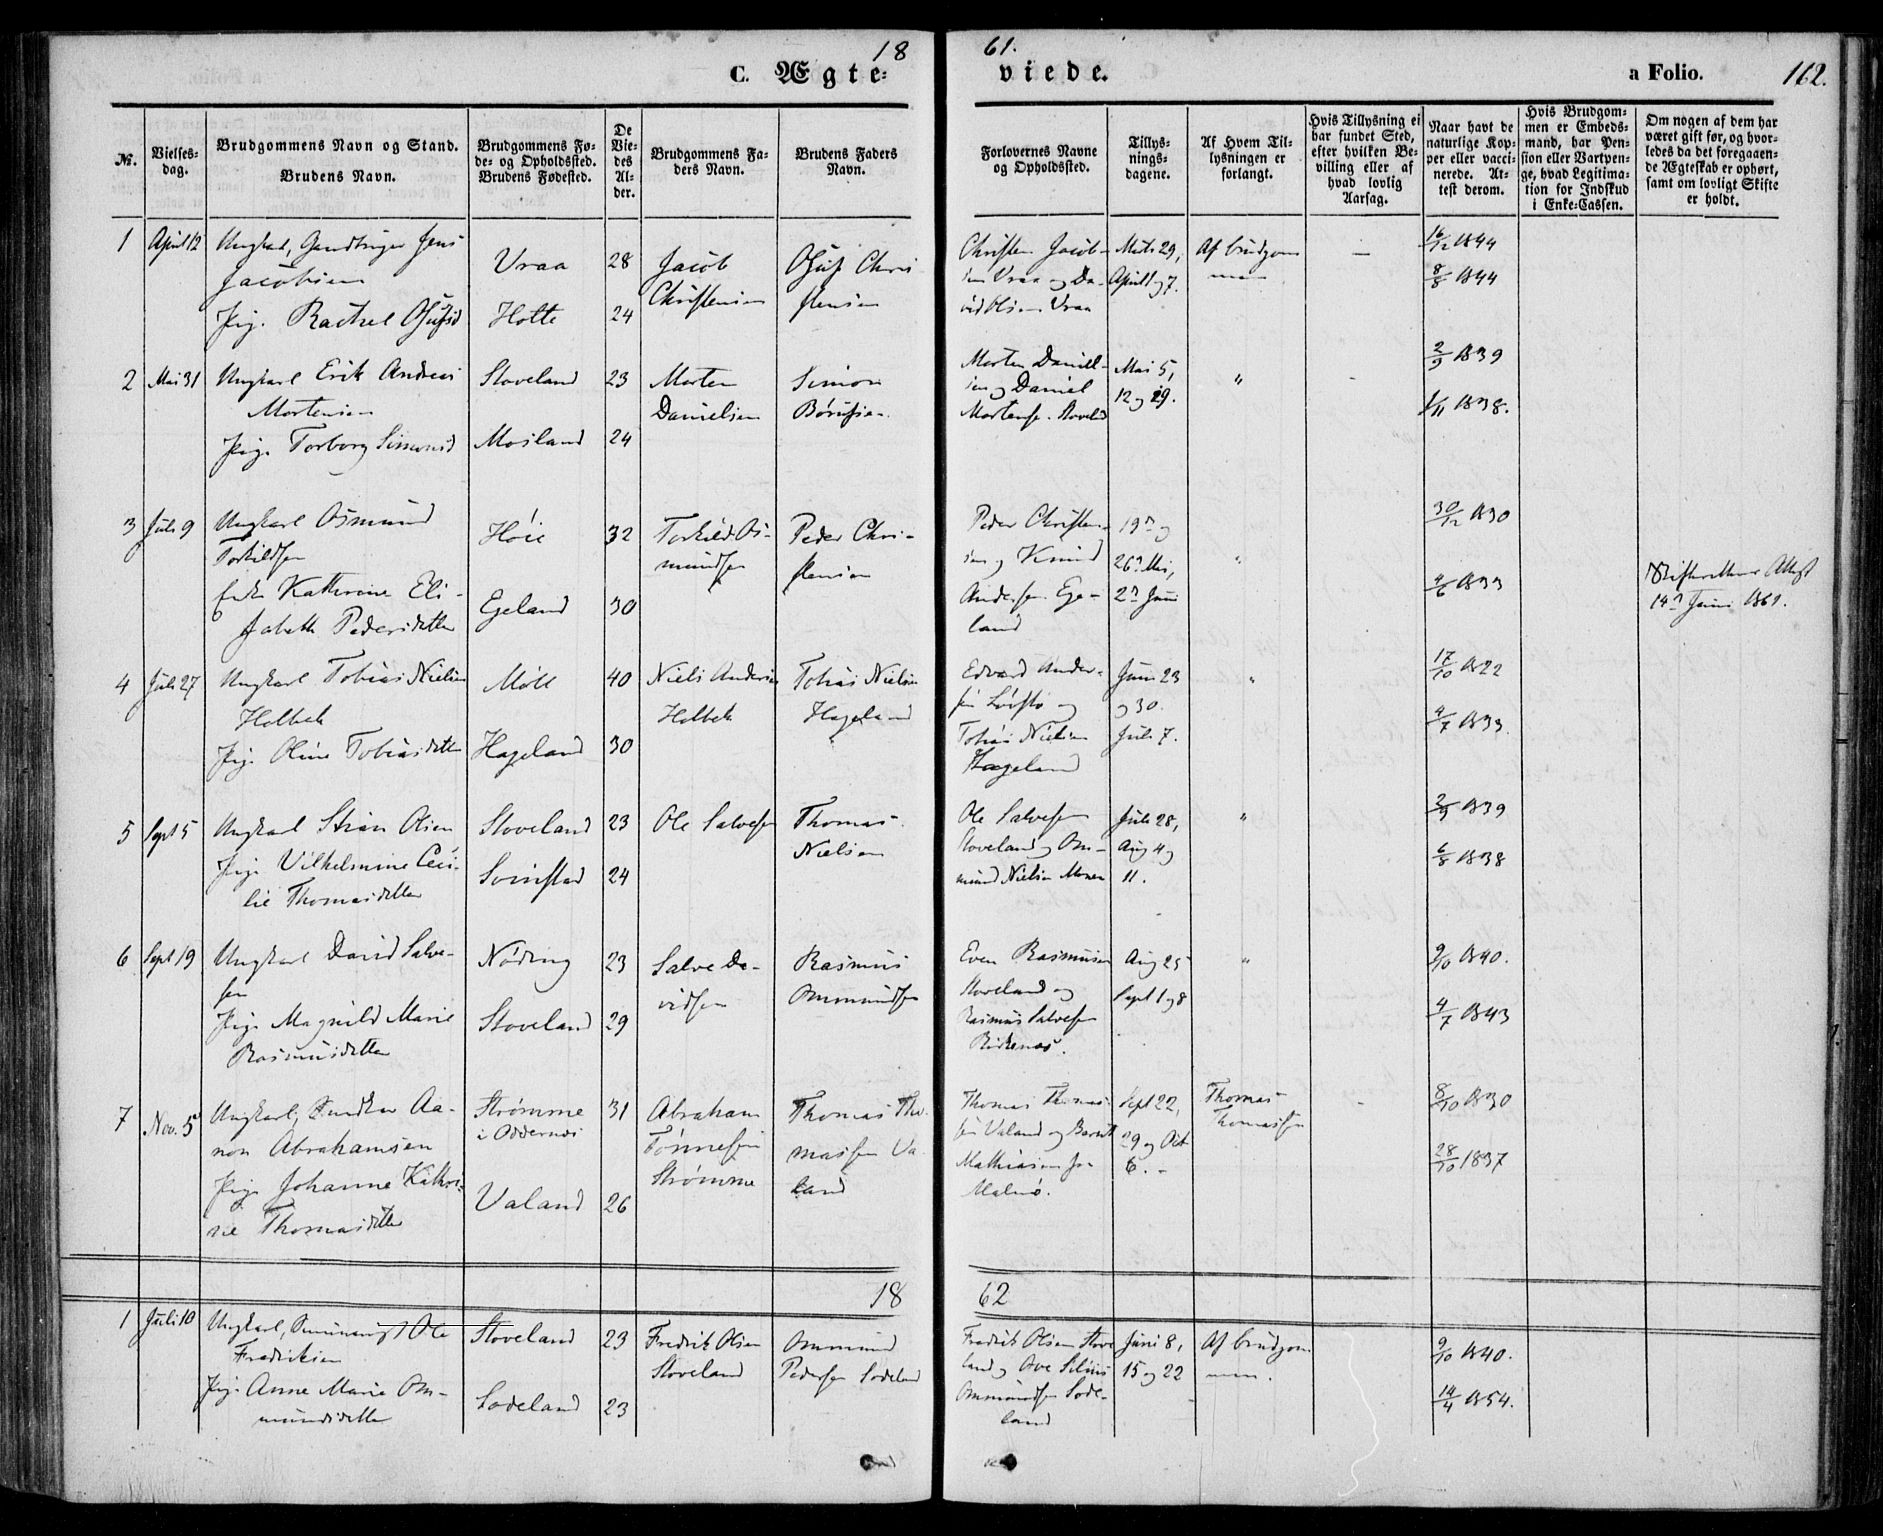 18 61.
C. Ægte= viede. a Folio. 162.
№.
Vielses-
dag.
Brudgommens Navn og Stand.
Brudens Navn.
Brudgommens Fø-
de- og Opholdssted.
Brudens Fødested.
De
Vie-
des
Al-
der.
Brudgommens Fa-
ders Navn.
Brudens Faders
Navn.
Forlovernes Navne
og Opholdssted.
Tillys-
nings-
dagene.
Af Hvem Til-
lysningen er
forlangt.
Hvis Tillysning ei
har fundet Sted,
efter hvilken Be-
villing eller af
hvad lovlig
Aarsag.
Naar havt de
naturlige Kop-
per eller vacci-
nerede. At-
test derom.
Hvis Brudgom-
men er Embeds-
mand, har Pen-
sion eller Vartpen-
ge, hvad Legitima-
tion for Indskud
i Enke-Cassen.
Om nogen af dem har
været gift før, og hvor-
ledes da det foregaaen-
de Ægteskab er ophørt,
samt om lovligt Skifte
er holdt.
1 April 12 Ungkarl, Jens
Jacobsen
Pige Rachel
Vraa 28
Holte 24
Jacob
Christensen
Chri-
stensen
Christen Jacob-
sen Vraa og Da-
vid Olsen Vraa
Marts 29,
April 1 og 7.
Af brudgom-
men
—
16/12 1844
8/8 1844
2 Mai 31 Ungkarl Erik Andreas
Mortensen
Pige Torborg Simonsd
Stoveland 23
Mosland 24
Morten
Danielsen
Simon
Børufsen
Morten Daniel-
sen og Daniel
Mortens.
Mai 5,
12 og 29.
"
-
2/9 1839
1/11 1838.
3 Juli 9 Ungkarl Osmund
Torkildsen
Enke Katherine Eli-
sabeth Pedersdatter
Høie 32
Egeland 30
Torkild Os-
mundsen
Peder Chri-
stensen
Peder Christen-
sen og Knud
Andersen Ege-
land
19de og
26de Mai,
2den Juni
"
30/12 1830
4/6 1833
Skifterettens Attest
14de Juni 1861.
4 Juli 27 Ungkarl Tobias Nielsen
Holbek
Pige Oline Tobiasdatter
Moll 40
Hageland 30
Niels Andersen
Holbek
Tobias Nielsen
Hageland
Edvard Ander-
sen og
Tobias Nielsen
Hageland
Juni 23
og 30.
Juli 7.
"
17/10 1822
4/7 1833.
5 Sept 5 Ungkarl Stian Olsen
Pige Vilhelmine Ceci-
lie Thomasdatter
Stoveland 23
24
Ole Salvesen
Thomas
Nielsen
Ole Salvesen
Stoveland og Om-
mund Nielsen Moner
Juli 28,
Aug 4 og
11.
"
2/9 1839
6/8 1838
6 Sept 19 Ungkarl David Salve-
sen
Pige Magnild Marie
Rasmusdatter
Nøding 23
Stoveland 29
Salve Da-
vidsen
Rasmus
Ommundsen
Even Rasmusen
Stoveland og
Rasmus Salvesen
Birkenæs.
Aug 25
Sept 1 og 8
"
9/10 1840.
4/7 1843
7 Nov. 5 Ungkarl, Aa-
non Abrahamsen
Pige Johanne Kathri-
ne Thomasdatter
Strømme
i Oddernæs 31
Valand 26
Abraham
Tønnesen
Strømme
Thomas Tho-
massen Va-
land
Thomas Thomas-
sen Valand og Berent
Mathiasen fra
Malmø.
Sept 22,
29 og Oct
6. -
Thomas
Thomassen
-
8/10 1830
28/10 1837
18 62
1 Juli 10 Ungkarl, Ole
Fredriksen
Pige Anne Marie Om-
mundsdatter
Stoveland 23
Lodeland 23
Fredrik Olsen
Stoveland
Ommund
Pedersen Lodeland
Fredrik Olsen Stove-
land og Ove
Ommundsen Lode-
land
Juni 8,
15 og 22
Af brudgom-
men.
9/10 1840.
14/4 1854.